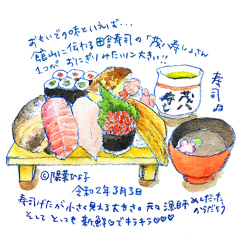 おもいでの味といえば…
館山に伝わる田舎寿司の「茂八寿し」さん
1つが おにぎりみたいに大きい!!
茂八寿し
寿司
©陽菜ひよ子
令和2年3月3日
寿司げたが小さく見える大きさは 元々 漁師めしだったからだとう
そして とっても 新鮮♡でキラキラ♡♡♡